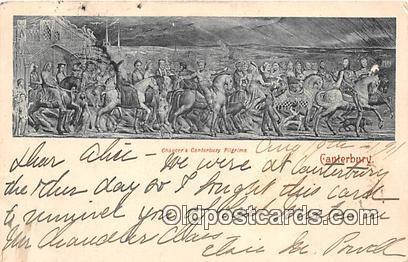 Chaucer's Canterbury Pilgrims.
Canterbury.
Aug
Dear Alice - We were at Canterbury
the other day & I bought this card
to remind you
Mrs Chandler Class
Elsie Mc. Powell
OLD POSTCARDS.COM